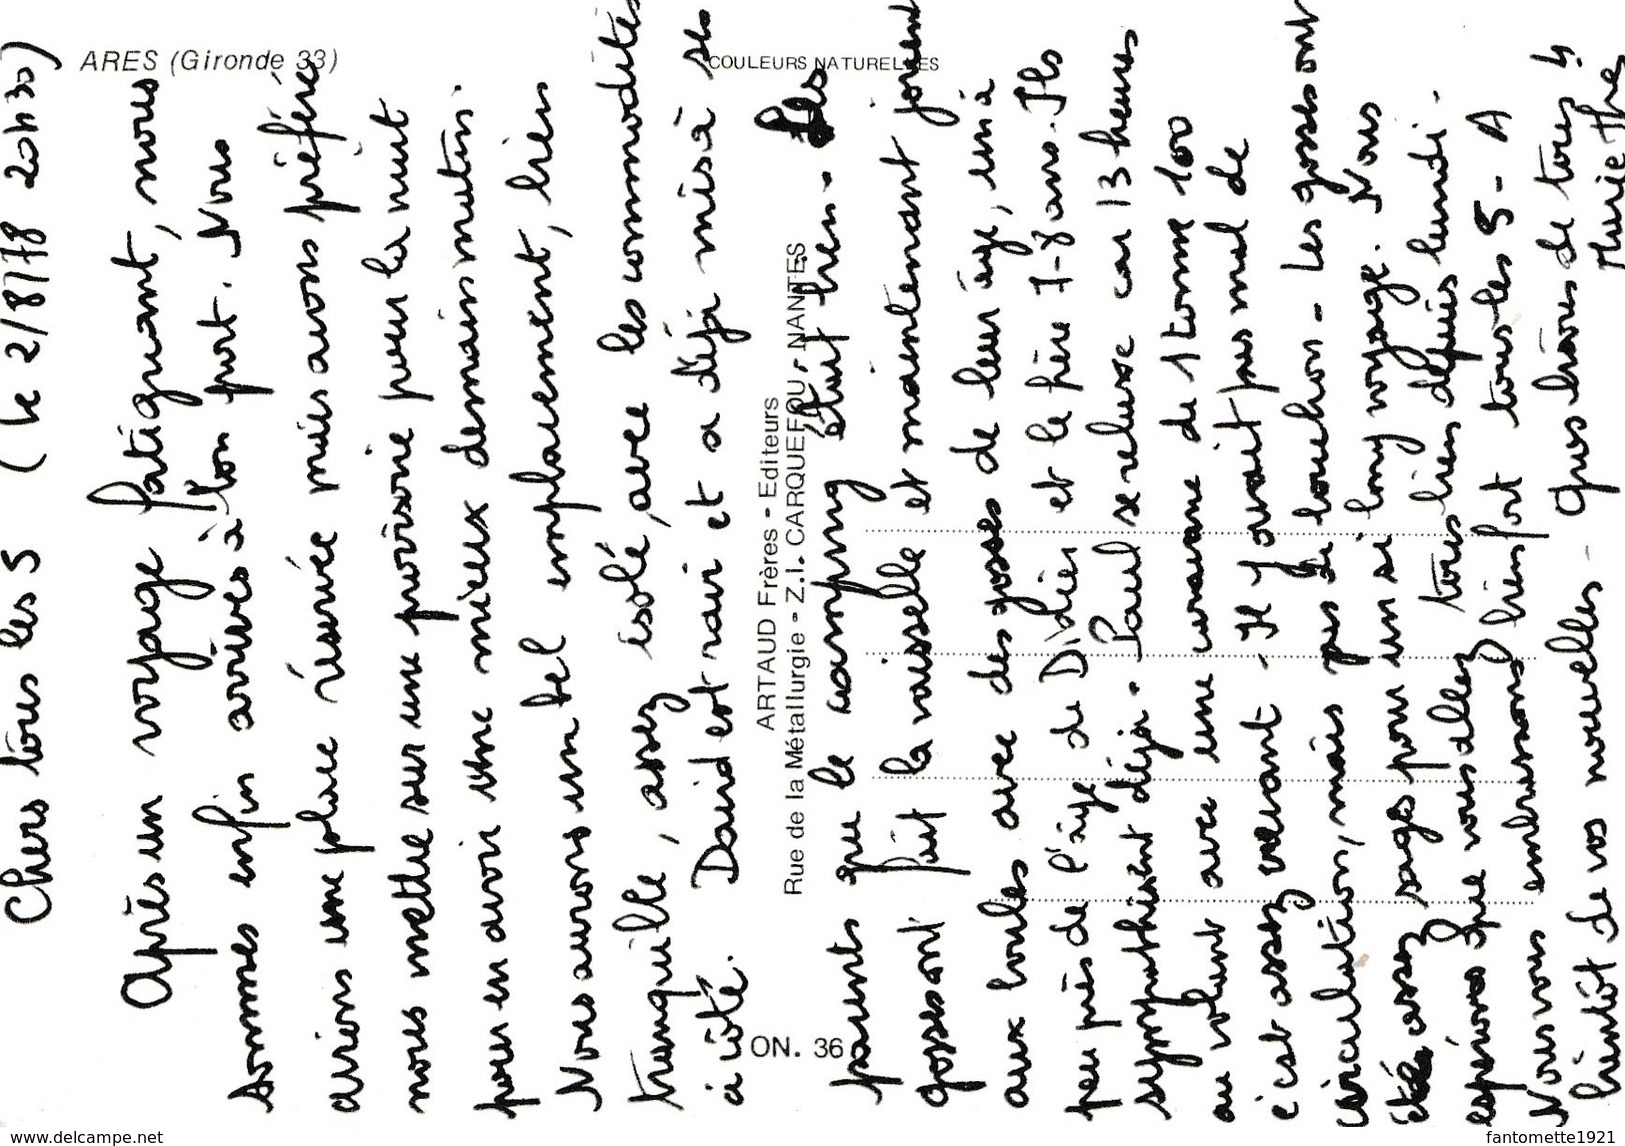 ARES (Gironde 33)
COULEURS NATURELLES
ARTAUD Frères - Editeurs
Rue de la Métallurgie - Z.I. CARQUEFOU - NANTES
ON. 36
Chers tous les 5 (le 2/8/78 20h30)
Après un voyage fatiguant, nous
sommes enfin arrivés à bon port. Nous
avions une place réservée mais avons préféré
nous mettre sur une provisoire pour la nuit
pour en avoir une mieux demain matin.
Nous aurons un bel emplacement, bien
tranquille, assez isolé, avec les commodités
à côté. David est ravi et a déjà mis à ses
parents que le camping était bien. Les
gosses ont fait la vaisselle et maintenant jouent
aux boules avec des gosses de leur âge, un à
peu près de l'âge de Didier et le frère 7-8 ans. Ils
sympathisent déjà. Paul se relaxe car 13 heures
au volant avec une caravane de 1 tonne 100
c'est assez crevant. Il y avait pas mal de
circulation, mais pas de bouchon. Les gosses ont
été assez sages pour un si long voyage. Nous
espérons que vous allez tous bien depuis lundi.
Nous vous embrassons bien fort tous les 5. A
bientôt de vos nouvelles. Gros baisers de tous 4
Marie Thé
delcampe.net
fantomette1921